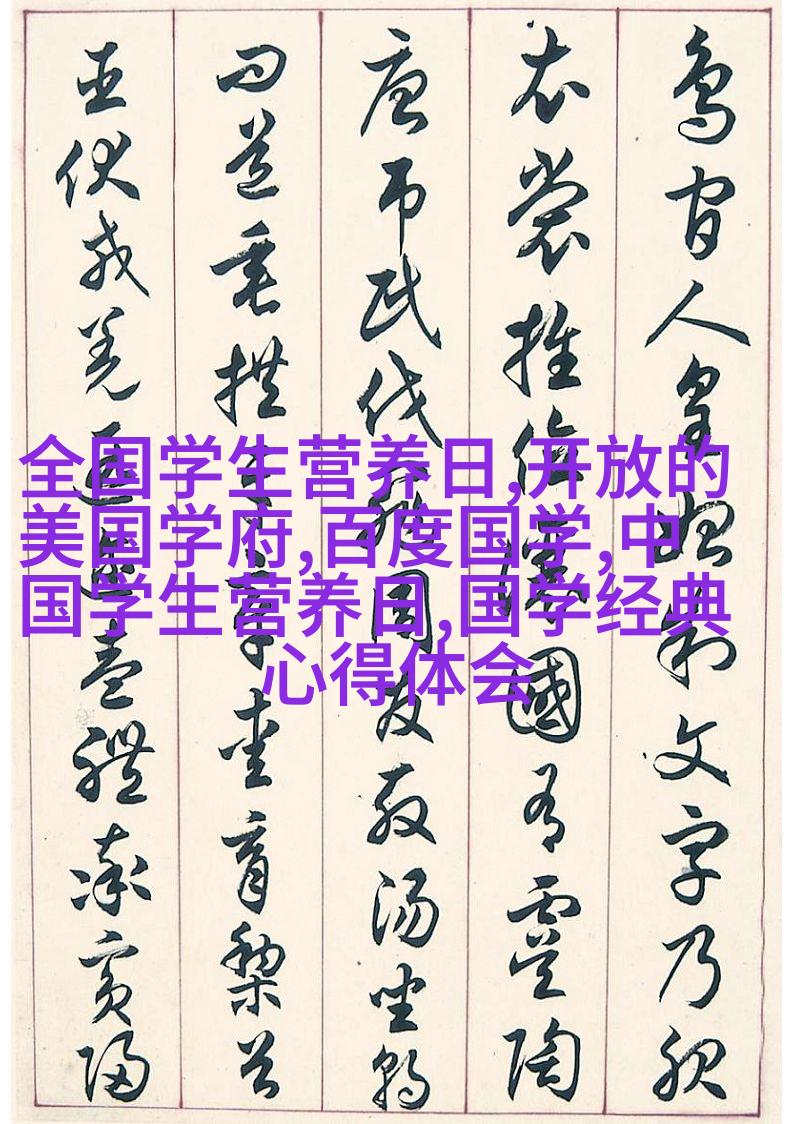 鳥官人皇始制文字乃服
衣裳推位讓國有虞陶
唐弔民伐罪周發殷湯坐朝
問道垂拱平章愛育黎首
臣伏戎羌遐邇壹體率賓歸
全国学生营养日,开放的
美国学府,百度国学,中
国学生营养日,国学经典
心得体会